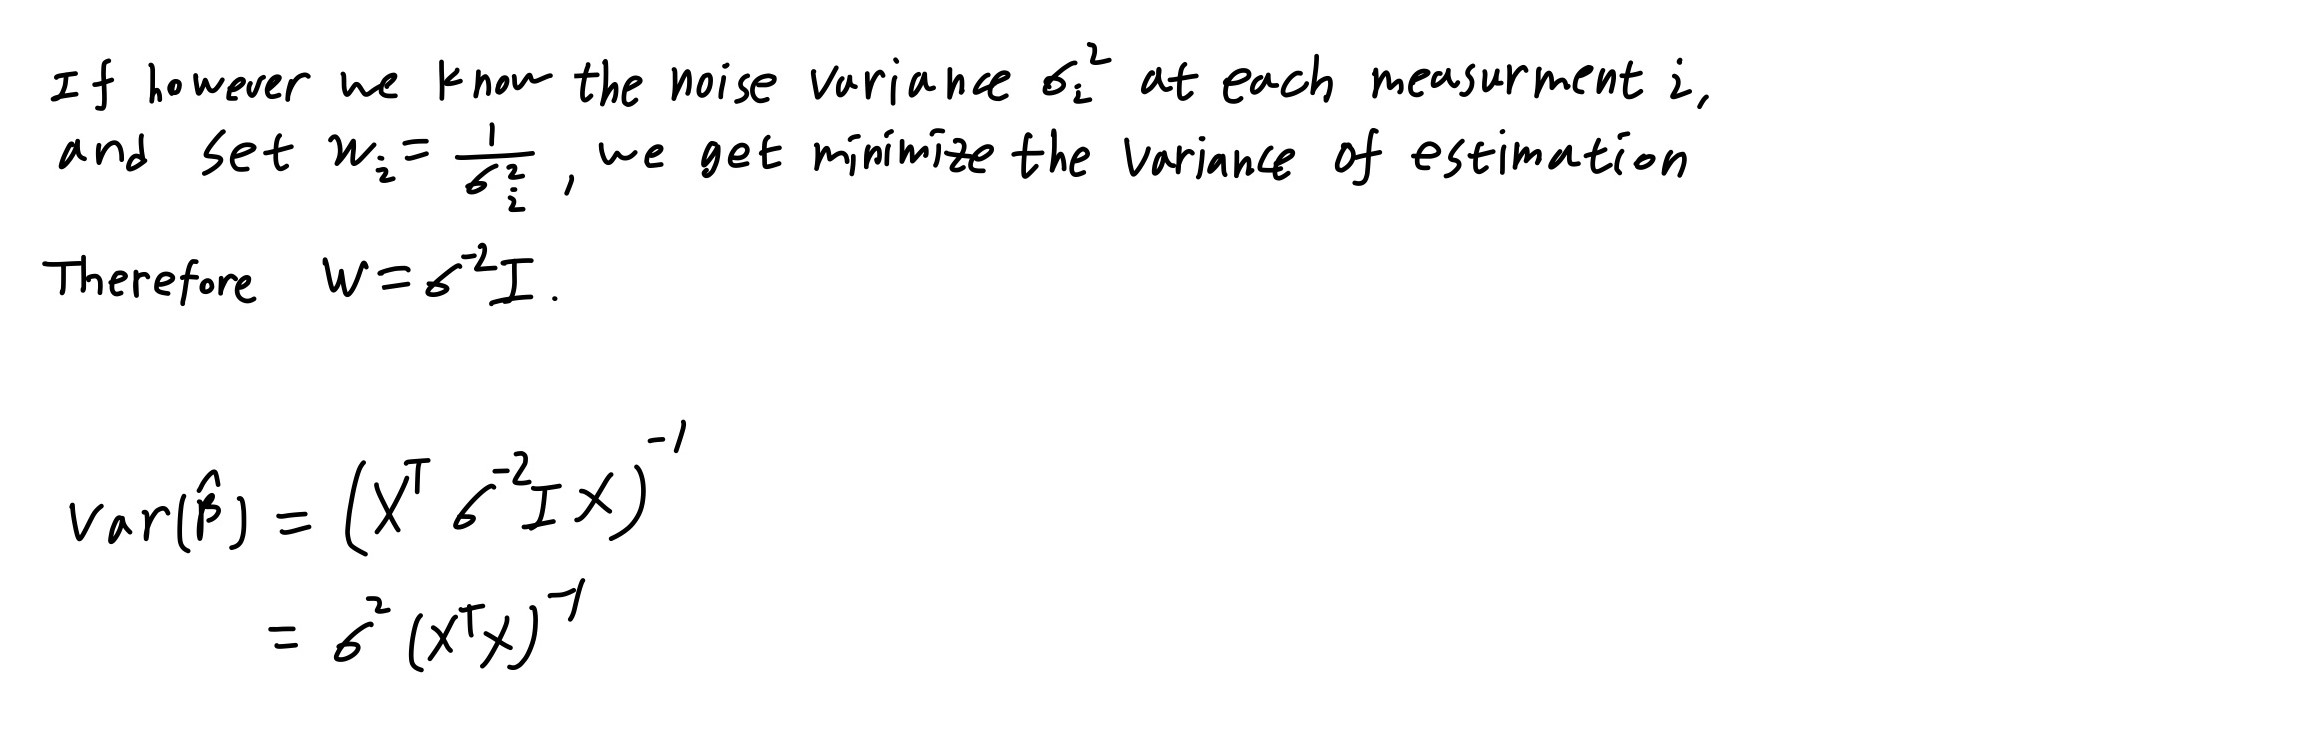 If however we know the noise variance σᵢ² at each measurment i,
and set wᵢ = 1/σᵢ², we get minimize the variance of estimation
Therefore W = σ⁻²I.
Var(β̂) = (Xᵀ σ⁻²I X)⁻¹
= σ² (XᵀX)⁻¹